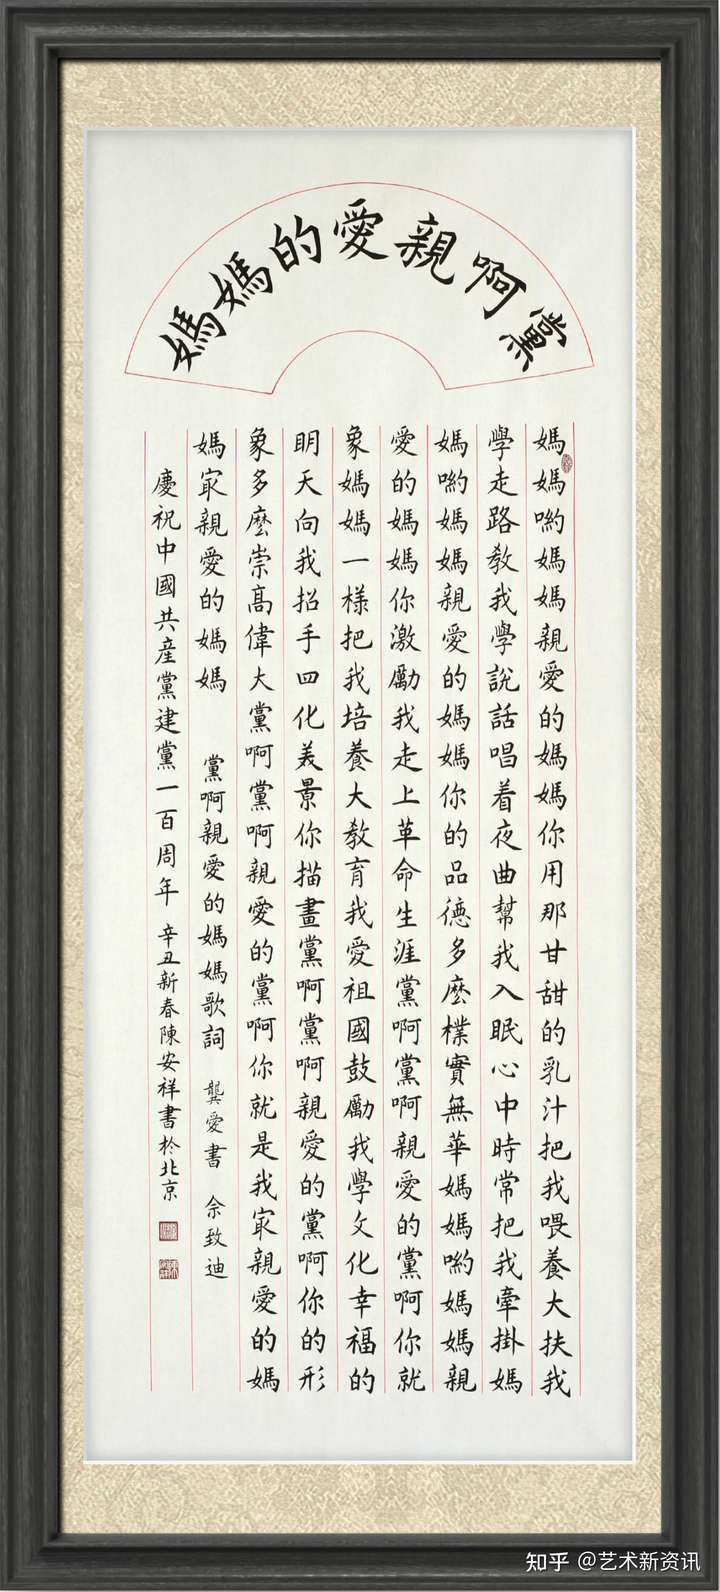 黨啊親愛的媽媽
媽媽喲媽媽親愛的媽媽你用那甘甜的乳汁把我喂養大扶我
學走路教我學說話唱着夜曲幫我入眠心中時常把我牽掛媽
媽喲媽媽親愛的媽媽你的品德多麼樸實無華媽媽喲媽媽親
愛的媽媽你激勵我走上革命生涯黨啊黨啊親愛的黨啊你就
象媽媽一樣把我培養大教育我愛祖國鼓勵我學文化幸福的
明天向我招手四化美景你描畫黨啊黨啊親愛的黨啊你的形
象多麼崇髙偉大黨啊黨啊親愛的黨啊你就是我㝡親愛的媽
媽㝡親愛的媽媽 黨啊親愛的媽媽歌詞 龔愛書 佘致迪
慶祝中國共産黨建黨一百周年 辛丑新春陳安祥書於北京
知乎 @艺术新资讯